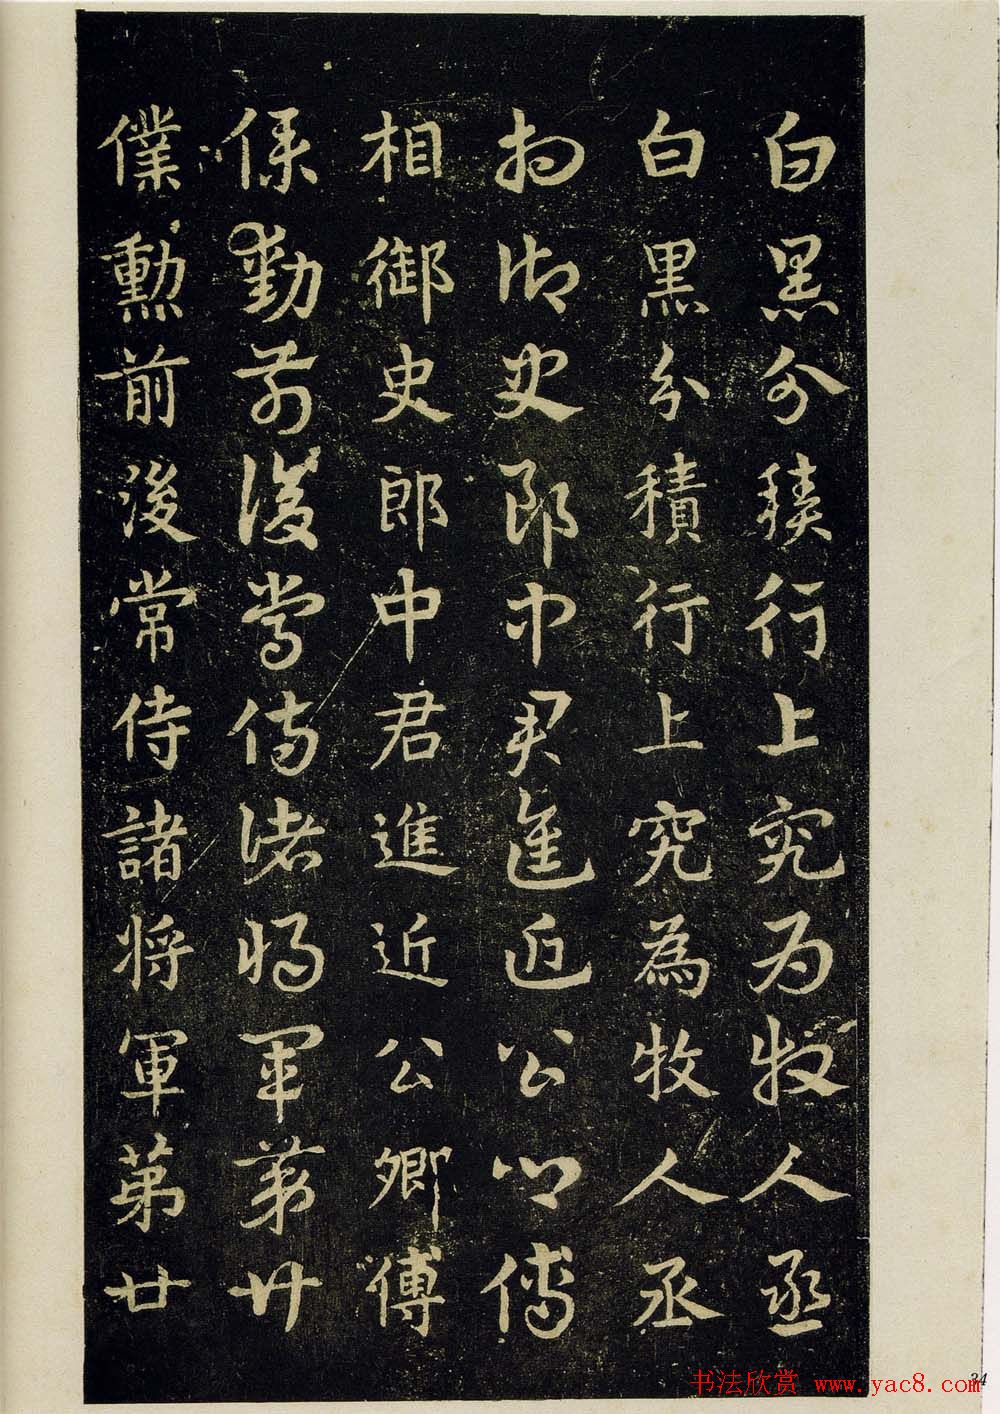 白黑分積行上究為牧人丞
白黑分積行上究為牧人丞
相御史郎中君進近公卿傅
相御史郎中君進近公卿傅
僕勳前後常侍諸將軍第廿
僕勳前後常侍諸將軍第廿
34
书法欣赏 www.yac8.com